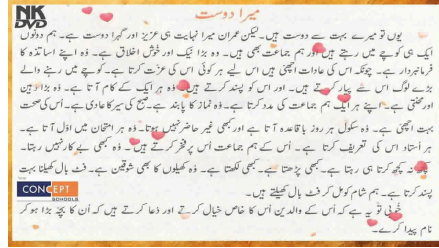 NK
DVD
میرا دوست
یوں تو میرے بہت سے دوست ہیں۔ لیکن عمران میرا نہایت ہی عزیز اور گہرا دوست ہے۔ ہم دونوں
ایک ہی کوچے میں رہتے ہیں اور ہم جماعت بھی ہیں۔ وہ بڑا نیک اور خوش اخلاق ہے۔ وہ اپنے اساتذہ کا
فرمانبردار ہے۔ چونکہ اس کی عادات اچھی ہیں اس لیے ہر کوئی اس کی عزت کرتا ہے۔ کوچے میں رہنے والے
بڑے لوگ اس سے پیار کرتے ہیں۔ اور اس کو پسند کرتے ہیں۔ وہ ہر ایک کے کام آتا ہے۔ وہ بڑا ذہین
اور محنتی ہے۔ اپنے ہر ایک ہم جماعت کی مدد کرتا ہے۔ وہ نماز کا پابند ہے۔ صبح کی سیر کا عادی ہے۔ اُس کی صحت
بہت اچھی ہے۔ وہ سکول ہر روز باقاعدہ آتا ہے اور کبھی غیر حاضر نہیں ہوتا۔ وہ ہر امتحان میں اوّل آتا ہے۔
ہر استاد اس کی تعریف کرتا ہے۔ اُس کے ہم جماعت اُس پر فخر کرتے ہیں۔ وہ کبھی بے کار نہیں رہتا۔
کچھ نہ کچھ کرتا ہی رہتا ہے۔ کبھی پڑھتا ہے۔ کبھی لکھتا ہے۔ وہ کھیلوں کا بھی شوقین ہے۔ فٹ بال کھیلنا بہت
پسند کرتا ہے۔ ہم شام کو مل کر فٹ بال کھیلتے ہیں۔
CONCEPT
SCHOOLS
خوبی تو یہ ہے کہ اُس کے والدین اُس کا خاص خیال کرتے اور دعا کرتے ہیں کہ اُن کا بچہ بڑا ہو کر
نام پیدا کرے۔